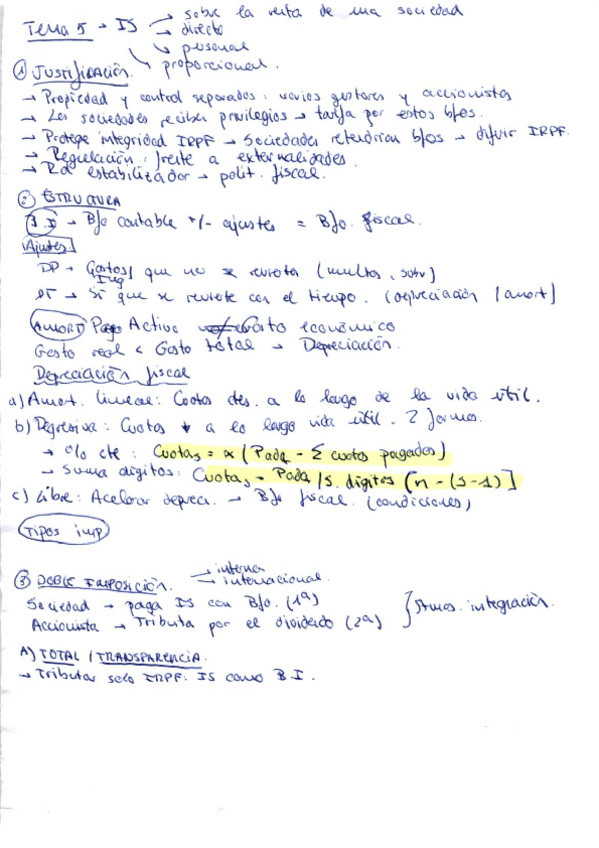 Tema 5 → IS → sobre la renta de una sociedad
→ directo
→ personal
→ proporcional.
① JUSTIFICACIÓN.
→ Propiedad y control separados: varios gestores y accionistas
→ Las sociedades reciben privilegios → tarifa por estos bfos.
→ Protege integridad IRPF → Sociedades retendrían bfos → diferir IRPF.
→ Regulación: frente a externalidades.
→ Rol estabilizador → polít. fiscal.
② ESTRUCTURA
B.I → Bfo contable +/- ajustes = Bfo. fiscal.
Ajustes
DP → Gastos/Ing que no se revierte (multas, subv)
DT → Sí que se revierte con el tiempo. (depreciación / amort)
AMORT Pago Activo ≠ Gasto económico
Gasto real < Gasto total → Depreciación.
Depreciación fiscal
a) Amort. lineal: Cuotas ctes. a lo largo de la vida útil.
b) Degresiva: Cuotas ↓ a lo largo vida útil. 2 formas.
→ % cte: Cuotas = α (Pada - Σ cuotas pagadas)
→ Suma dígitos: Cuotas = Pada / S. dígitos [n - (s-1)]
c) Libre: Acelerar deprec. → Bfo fiscal. (condiciones)
Tipos imp
③ DOBLE IMPOSICIÓN. → interna
→ internacional.
Sociedad → paga IS con Bfo. (1ª)
Accionista → Tributa por el dividendo (2ª) } Stmas. integración.
A) TOTAL / TRANSPARENCIA.
→ Tributar solo IRPF: IS como B.I.